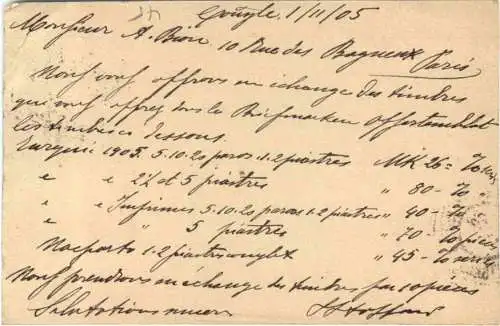 1/11/05
Monsieur A. Bion 10 Rue des Bagneux Paris
Nous vous offrons en échange des timbres
que vous offrez dans le Briefmarken Offertenblatt
les timbres dessous.
Turquie 1905. 5.10.20 paras 1.2 piastres MK 26=
" " 2½ et 5 piastres " 80-
" " Imprimés 5.10.20 paras 1.2 piastres " 40-
" " " 5 piastres " 70
1.2 piastres " 45-
Nous prendrons en échange des timbres par 10 pièces
Salutations